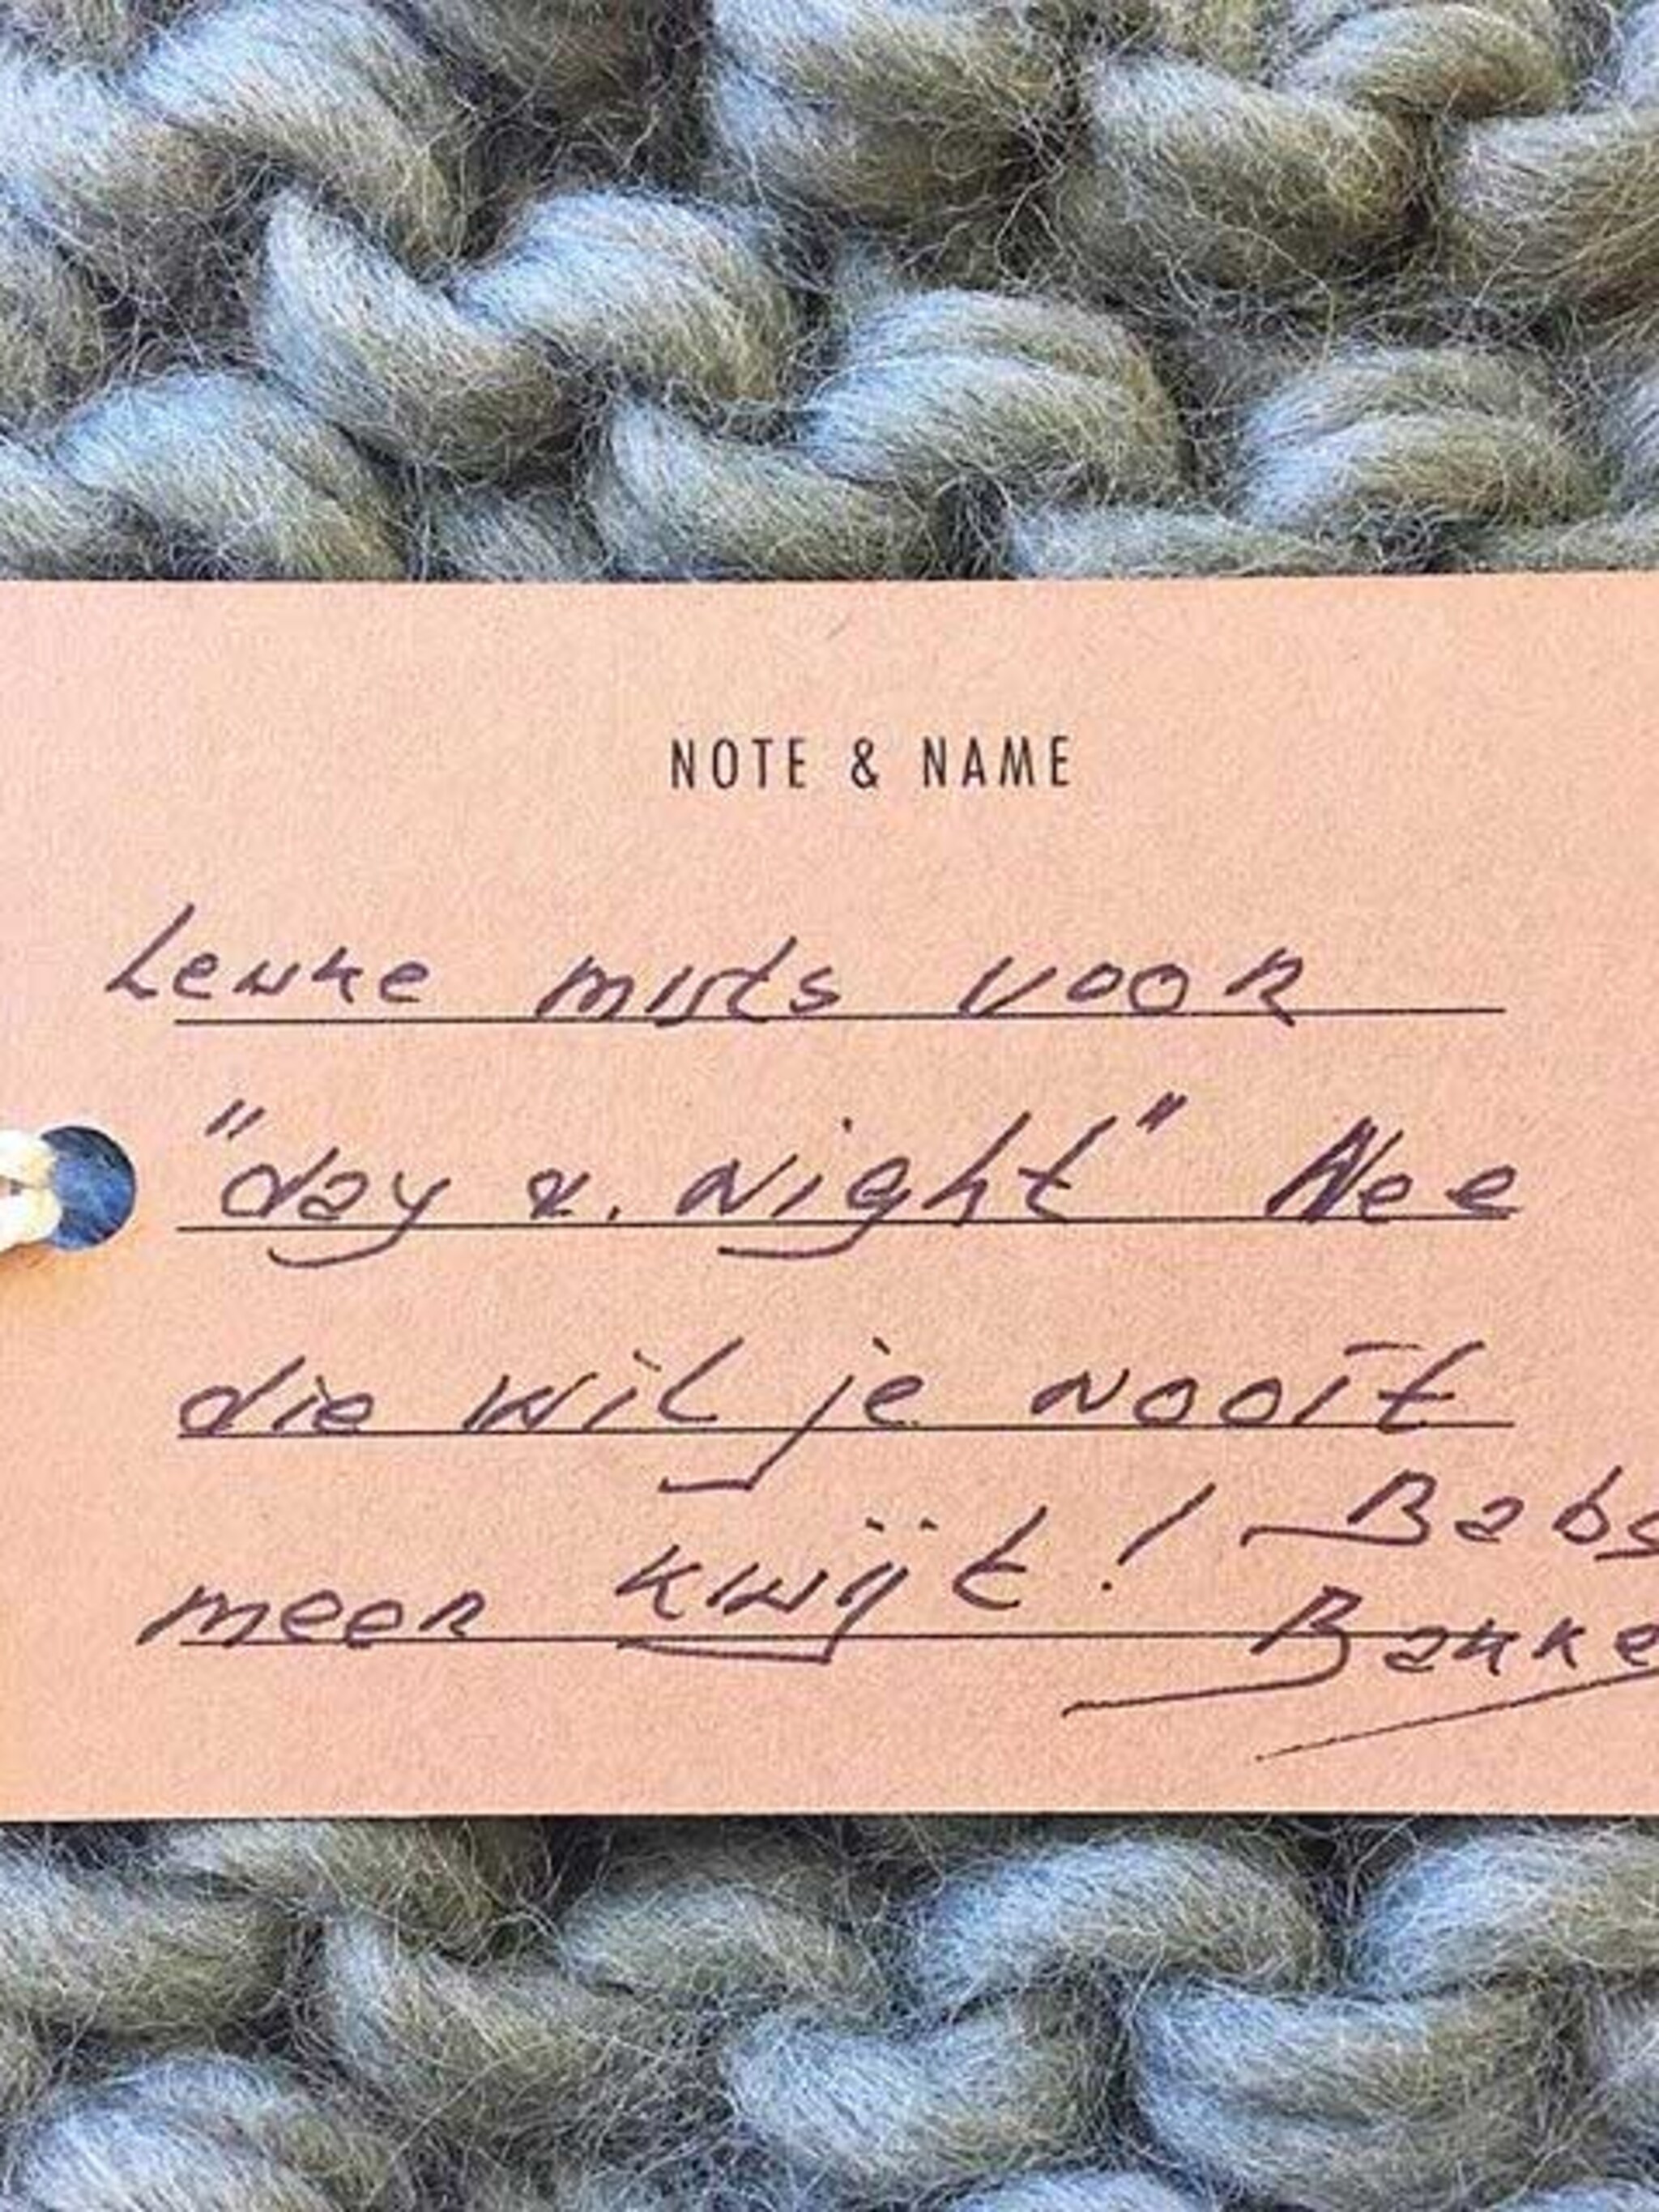 NOTE & NAME
Leuke muts voor
"day & Night" Nee
die wil je nooit
meer kwijt! Babs
Bakke